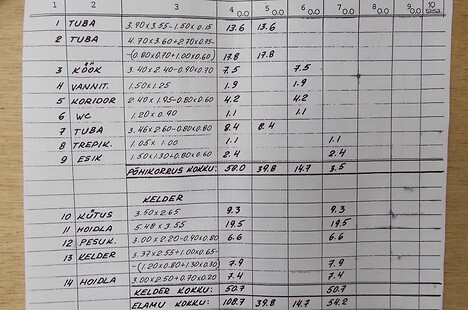 1 2 3 4 5 6 7 8 9 10
0.0 0.0 0.0 0.0 0.0 0.0
1 TUBA 3.90x3.55-1.50x0.15 13.6 13.6
2 TUBA 4.70x3.60+2.70x0.75-
-(0.80x0.70+1.00x0.60) 17.8 17.8
3 KÖÖK 3.40x2.40-0.90x0.70 7.5 7.5
4 VANNIT. 1.50x1.25 1.9 1.9
5 KORIDOR 2.40x1.95-0.80x0.60 4.2 4.2
6 WC 1.20x0.90 1.1 1.1
7 TUBA 3.46x2.60-0.80x0.80 8.4 8.4
8 TREPIK. 1.05x1.00 1.1 1.1
9 ESIK 1.50x1.30+0.80x0.60 2.4 2.4
PÕHIKORRUS KOKKU: 58.0 39.8 14.7 3.5
KELDER
10 KÜTUS 3.50x2.65 9.3 9.3
11 HOIDLA 5.48x3.55 19.5 19.5
12 PESUK. 3.00x2.20-0.90x0.80 6.6 6.6
13 KELDER 3.37x2.55+1.00x0.65-
-(1.20x0.80+1.30x0.30) 7.9 7.9
14 HOIDLA 3.00x2.50+0.70x0.20 7.4 7.4
KELDER KOKKU: 50.7 50.7
ELAMU KOKKU: 108.7 39.8 14.7 54.2